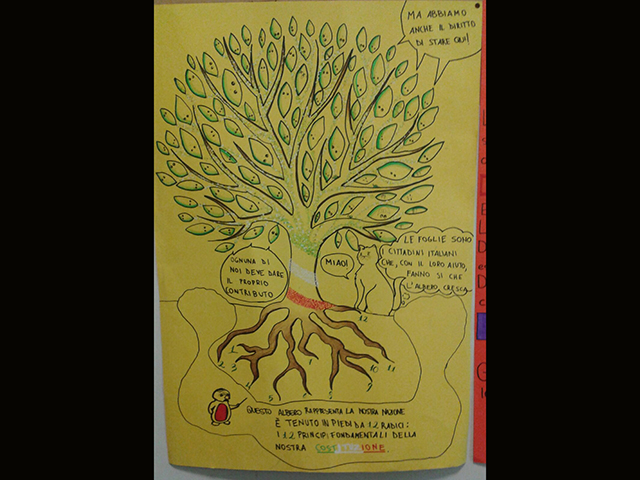 MA ABBIAMO
ANCHE IL DIRITTO
DI STARE QUI!
OGNUNA DI
NOI DEVE DARE
IL PROPRIO
CONTRIBUTO
MIAO!
LE FOGLIE SONO
CITTADINI ITALIANI
CHE, CON IL LORO AIUTO,
FANNO SÌ CHE
L'ALBERO CRESCA
12
10
11
QUESTO ALBERO RAPPRESENTA LA NOSTRA NAZIONE
È TENUTO IN PIEDI DA 12 RADICI:
I 12 PRINCIPI FONDAMENTALI DELLA
NOSTRA COSTITUZIONE.